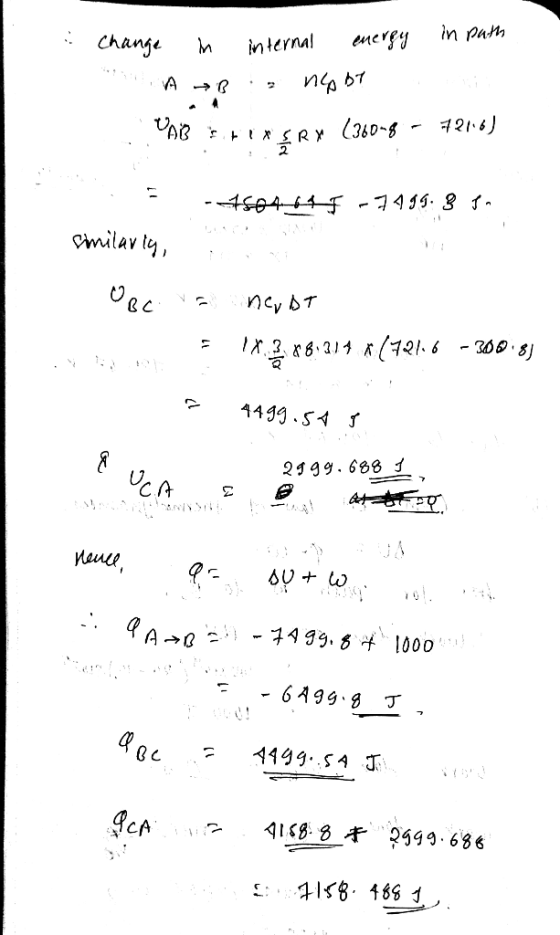 ∴ Change in internal energy in path
A → B = nCp ΔT
UAB = + 1 × 5/2 R × (360.8 - 721.6)
= - 7499.8 J.
Similarly,
UBC = nCv ΔT
= 1 × 3/2 × 8.314 × (721.6 - 360.8)
= 4499.54 J
& UCA = 2999.688 J,
Hence, Q = ΔU + W
∴ QA→B = - 7499.8 + 1000
= - 6499.8 J,
QBC = 4499.54 J
QCA = 4158.8 + 2999.688
= 7158.488 J,